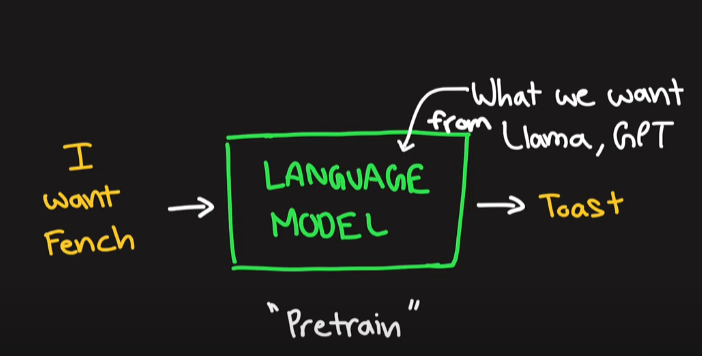 What we want
from Llama, GPT
I
want
Fench
LANGUAGE
MODEL
Toast
"Pretrain"